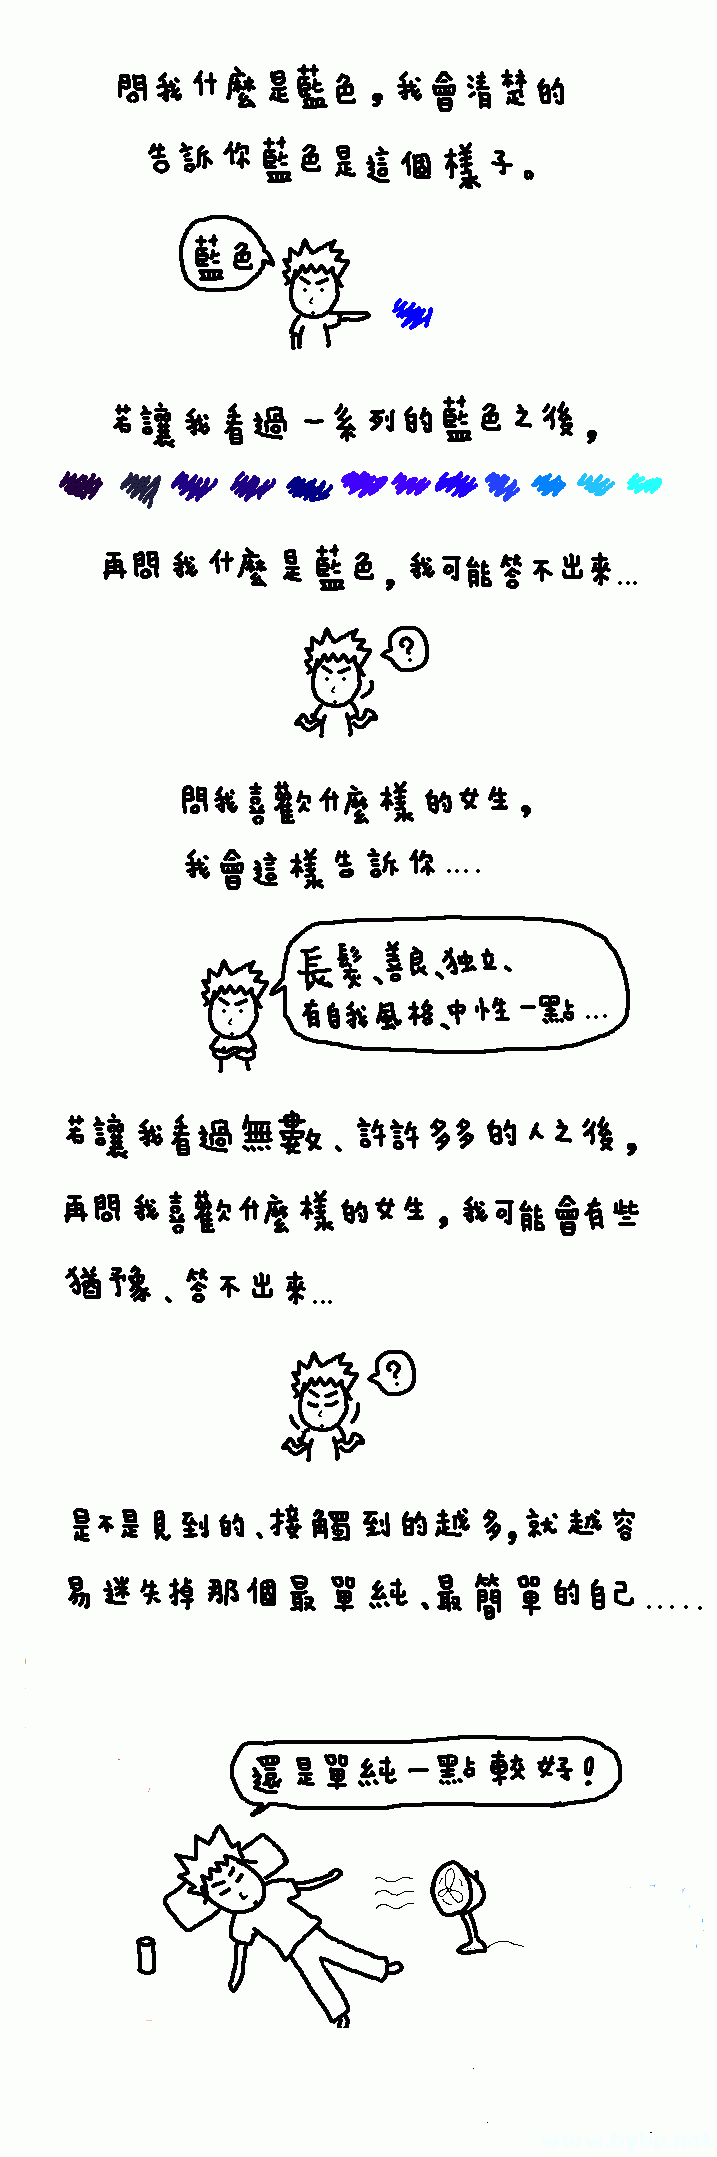 問我什麼是藍色，我會清楚的
告訴你藍色是這個樣子。
藍色
若讓我看過一系列的藍色之後，
再問我什麼是藍色，我可能答不出來...
?
問我喜歡什麼樣的女生，
我會這樣告訴你....
長髮、善良、独立、
有自我風格、中性一點...
若讓我看過無數、許許多多的人之後，
再問我喜歡什麼樣的女生，我可能會有些
猶予豫、答不出來...
?
是不是見到的、接觸到的越多，就越容
易迷失掉那個最單純、最簡單的自己.....
還是單純一點較好！